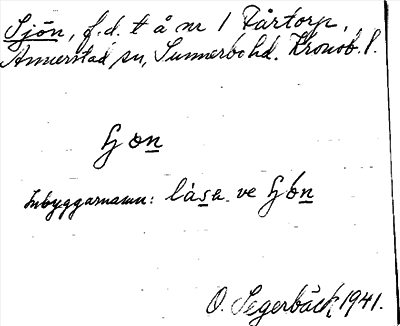 Sjön, f.d. t å nr 1 Fårtorp,
Annerstad sn, Sunnerbo hd. Kronob. l.
ʃön
Inbyggarnamn: lå̀sa ve ʃön
O. Segerbäck 1941.